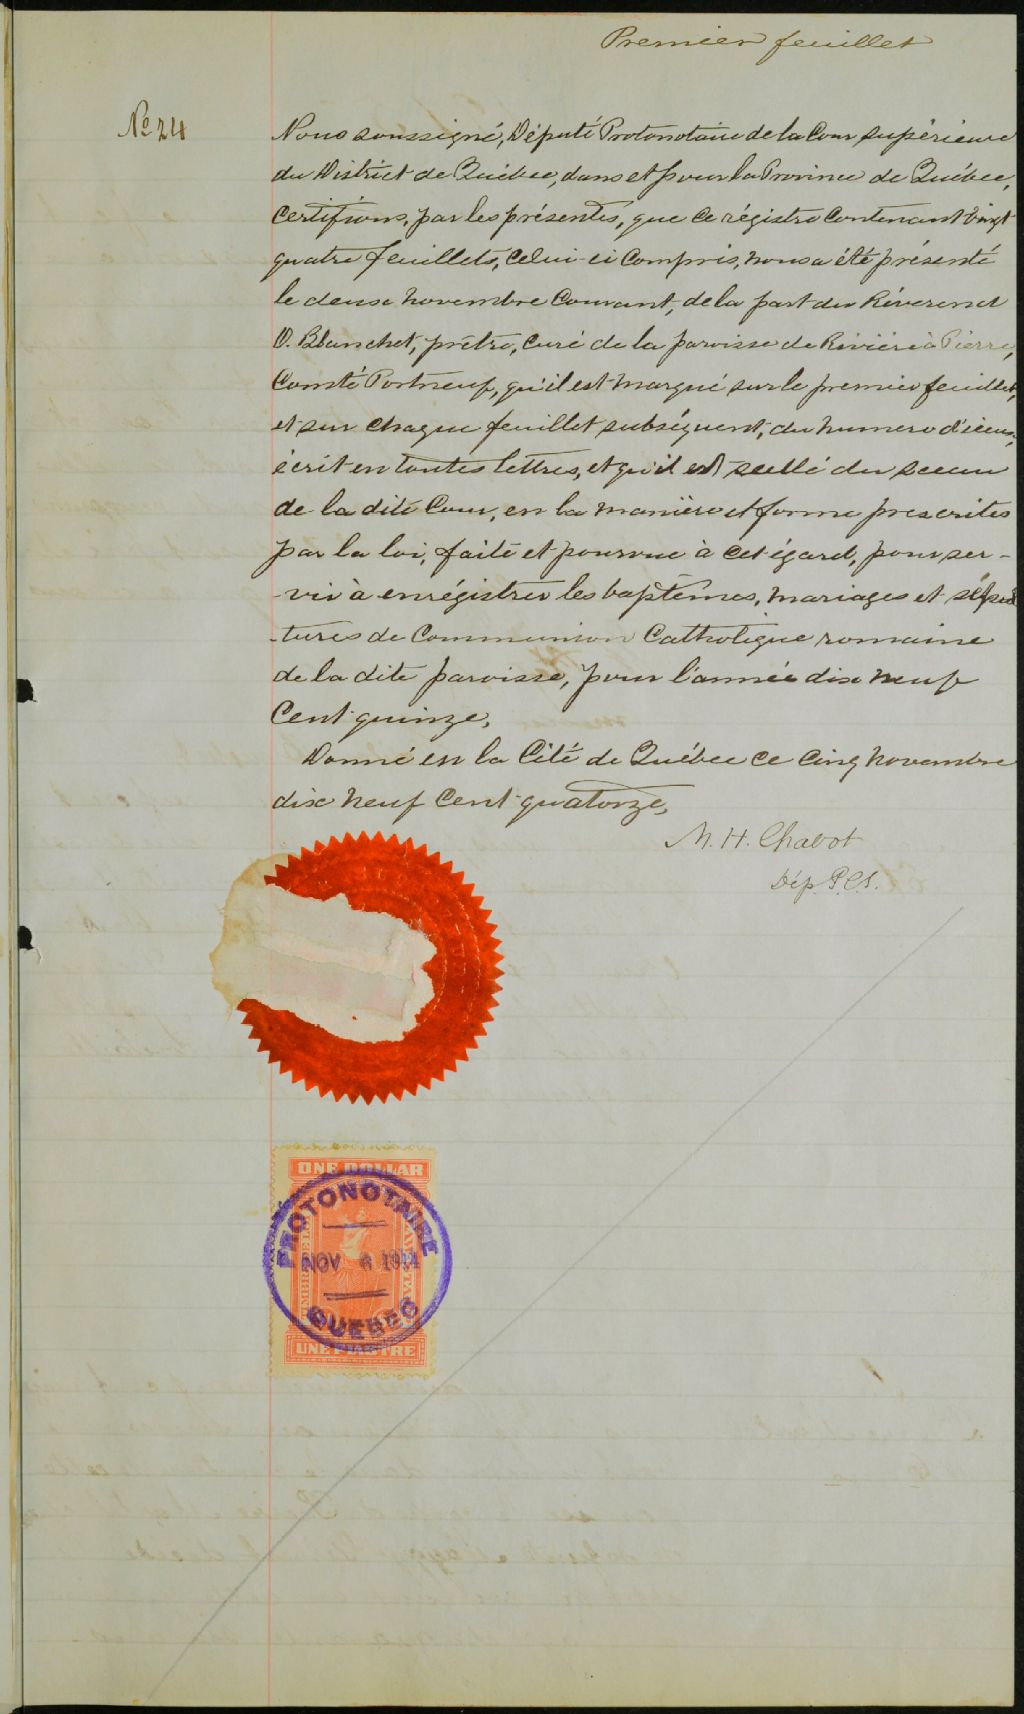 Premier feuillet
No 24
Nous soussigné, Député Protonotaire de la Cour supérieure
du District de Québec, dans et pour la Province de Québec,
Certifions, par les présentes, que ce régistre contenant vingt
quatre feuillets, celui-ci compris, nous a été présenté
le deux novembre courant, de la part du Révérend
O. Blanchet, prêtre, curé de la paroisse de Rivière à Pierre,
Comté Portneuf, qu'il est marqué sur le premier feuillet,
et sur chaque feuillet subséquent, du numero d'iceux,
écrit en toutes lettres, et qu'il est scellé du sceau
de la dite Cour, en la manière et forme prescrites
par la loi, faite et pourvue à cet égard, pour ser-
-vir à enrégistrer les baptêmes, mariages et sépul
-tures de Communion Catholique romaine
de la dite paroisse, pour l'année dix neuf
Cent quinze.
Donné en la Cité de Québec ce cinq novembre
dix neuf Cent quatorze,
M. H. Chabot
Dép. P.C.S.
ONE DOLLAR
PROTONOTAIRE
NOV 6 1914
QUEBEC
UNE PIASTRE